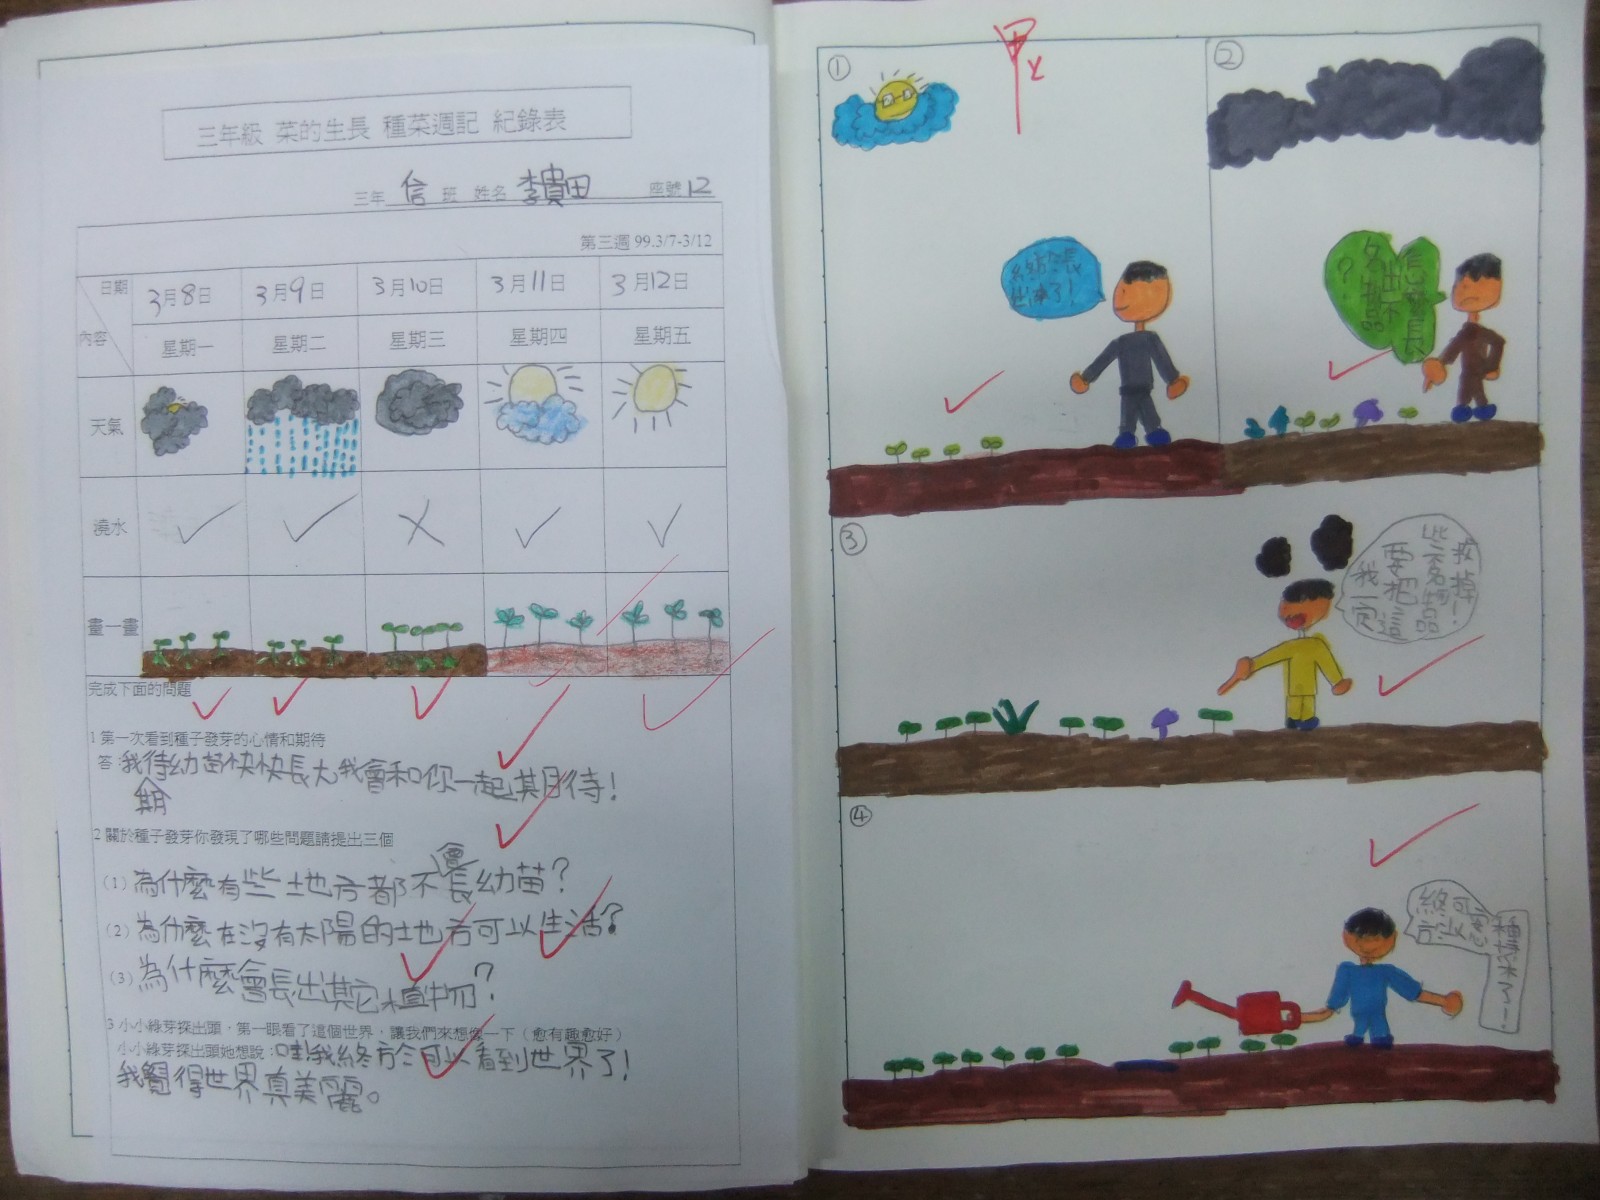 三年級 菜的生長 種菜週記 紀錄表
三年 信 班 姓名 李貴田 座號 12
第三週 99.3/7-3/12
日期 3月8日 3月9日 3月10日 3月11日 3月12日
內容 星期一 星期二 星期三 星期四 星期五
天氣
澆水
畫一畫
完成下面的問題
1 第一次看到種子發芽的心情和期待
答:我期待幼苗快快長大,我會和你一起其月待!
2 關於種子發芽你發現了哪些問題請提出三個
(1) 為什麼有些土地方都不會長幼苗?
(2) 為什麼在沒有太陽的土地方可以生活?
(3) 為什麼會長出其它植物?
3 小小綠芽探出頭,第一眼看了這個世界,讓我們來想像一下(愈有趣愈好)
小小綠芽探出頭她想說:哇!我終於可以看到世界了!
我覺得世界真美麗。
①
甲
終於長
出來了!
②
怎麼會長
出不
名物品
?
③
我一定
要把這
些不名物品
拔掉!
④
終於
可以
種
菜了!